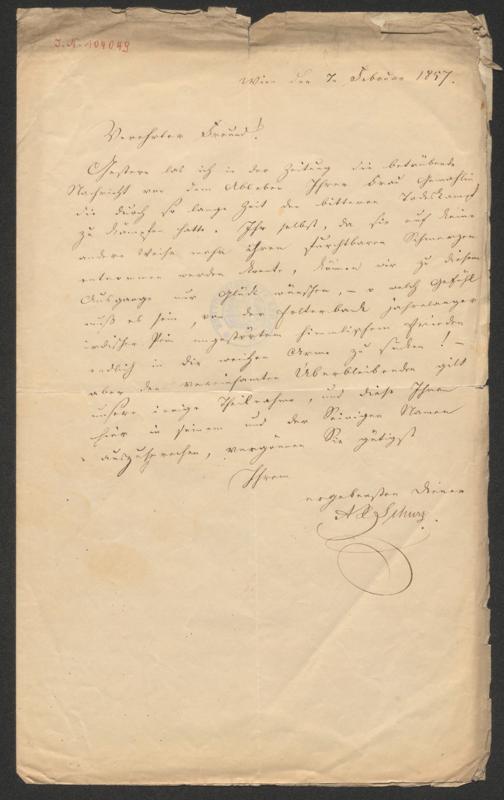 I. N. 104049
Wien den 7. Februar 1857.
Verehrter Freund!
Gestern las ich in der Zeitung die betrübende
Nachricht von dem Ableben Ihrer Frau Gemahlin,
die durch so lange Zeit den bitteren Todeskampf
zu kämpfen hatte. Ihr selbst, da sie auf keine
andere Weise mehr ihren furchtbaren Schmerzen
entnommen werden konnte, können wir zu diesem
Ausgange nur Glück wünschen, – o welch Gefühl
muß es sein, von der Folterbank jahrelanger
irdischer Pein ungestörtem himmlischem Frieden
endlich in die weichen Arme zu sinken! –
aber den vereinsamten Überbleibenden gilt
unsere innige Theilnahme, und diese Ihnen
hier in seinem und der Seinigen Namen
auszusprechen, vergönnen Sie gütigst
Ihrem
ergebensten Diener
A. Schurz.